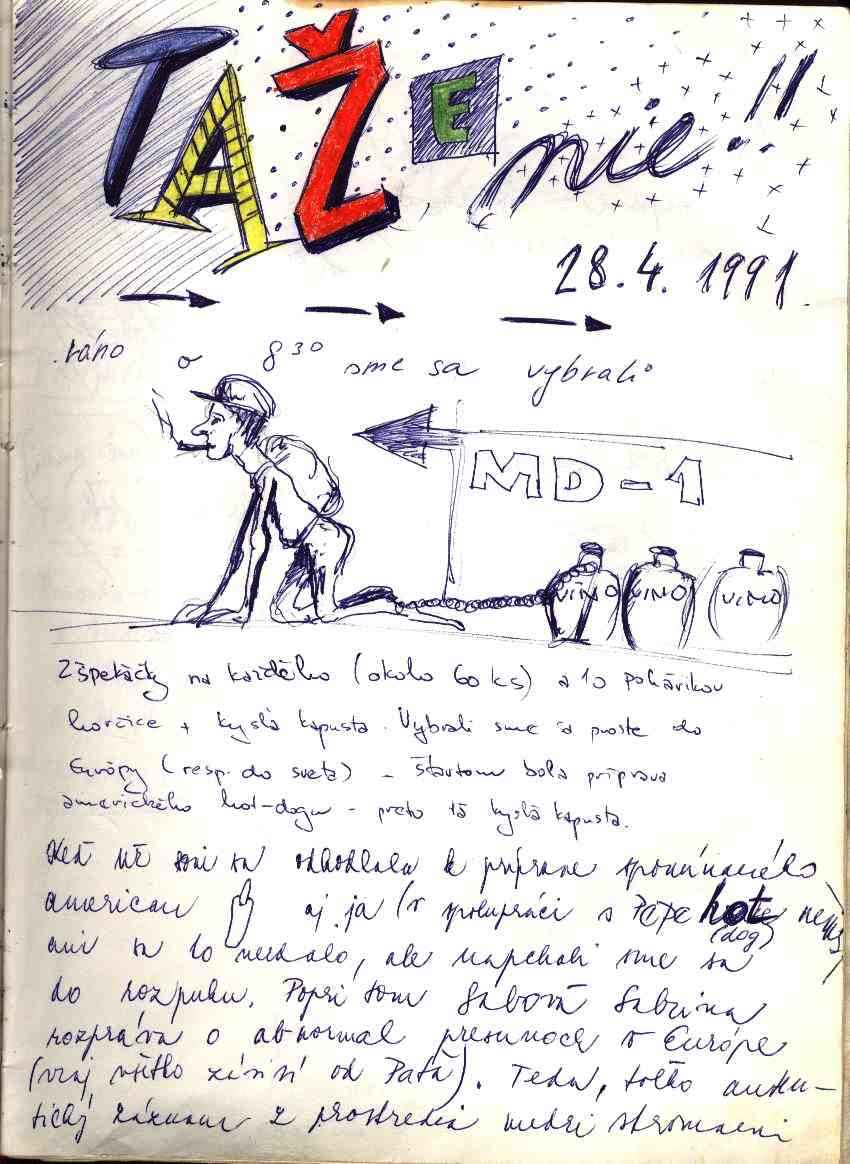 TAŽEnie!!
28.4. 1991.
ráno o 8 30 sme sa vybrali
MD-1
VÍNO VINO VINO
2 špekáčky na každého (okolo 60 ks) a 10 pohárikov
horčice + kyslá kapusta. Vybrali sme sa proste do
Európy (resp. do sveta) – bola príprava
amerického hot-dogu – preto tá kyslá kapusta.
Keď už sa odhodlala k príprave spomínaného
american aj ja (v spolupráci s Pepe hot
(dog)
ani sa to nezdalo, ale napchali sme sa
do rozpuku. Popri tom Gabová Sabrina
rozpráva o abnormal presunoch v Európe
(vraj všetko závisí od Paťa). Teda, toľko auten-
tický záznam z prostredia medzi stromami